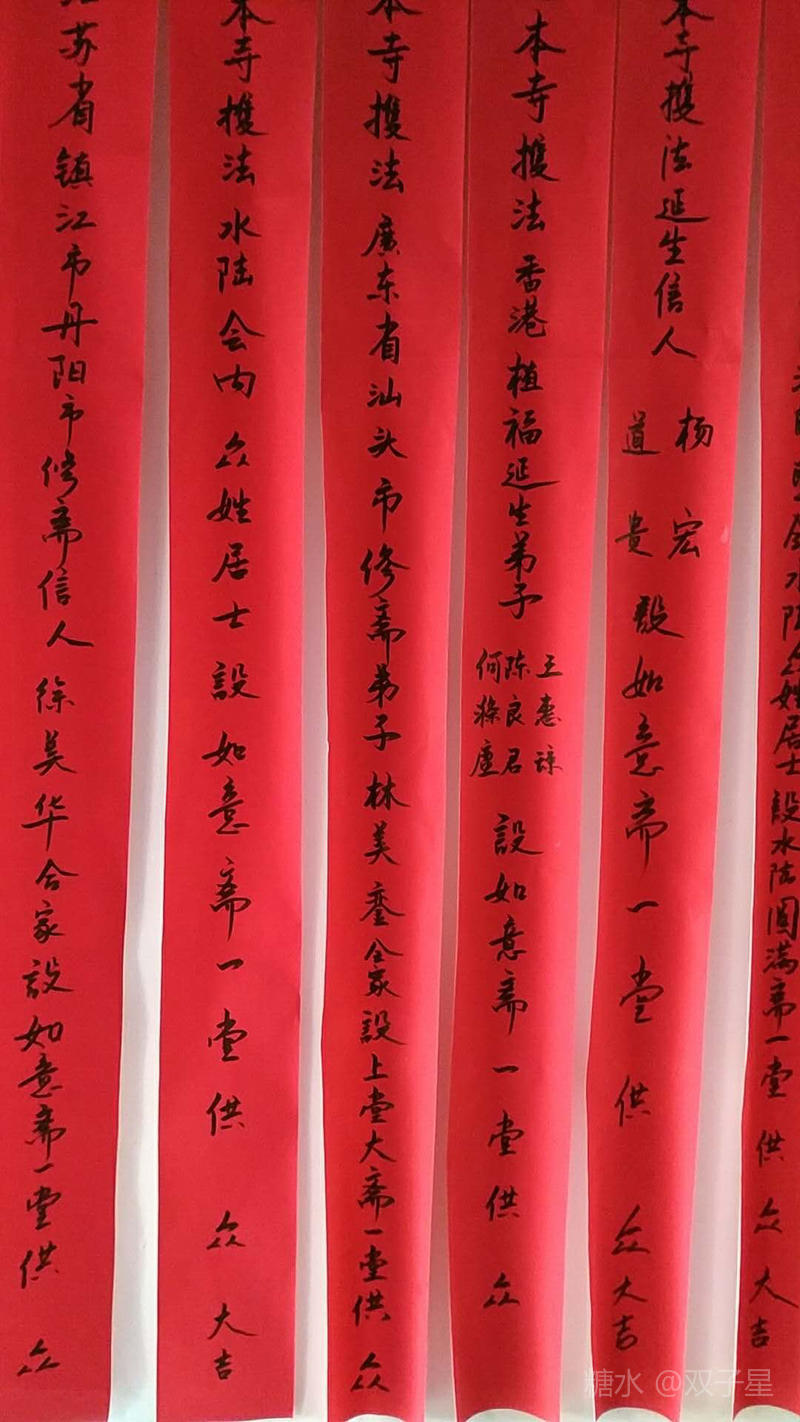 水陆众姓居士設水陆圆满斋一堂供众大吉
本寺擭法延生信人
杨宏
道貴
設如意斋一堂供众大吉
本寺擭法香港植福延生弟子
王惠
陈良君
何
設如意斋一堂供众
本寺擭法廣东省汕头市修斋弟子林美銮全家設上堂大斋一堂供众
本寺擭法水陆会内众姓居士設如意斋一堂供众大吉
江苏省镇江市丹阳市修斋信人徐美华合家設如意斋一堂供众
糖水 @双子星